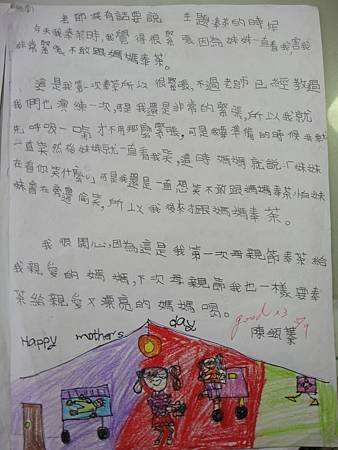 老師我有話要說 主題:奉茶的時候
今天我奉茶時,我覺得很緊張,因為妹妹一直看我,害我
非常緊張不敢跟媽媽奉茶。
這是我第一次奉茶所以很緊張,不過老師已經教過
我們也演練一次,可是我還是非常的緊張,所以我就
先呼吸一才不用那麼緊張,可是準備的時候我就
一直突然怕妹妹就一直看我笑,這時媽媽就說:「妹妹
在看你笑什麼」可是我還是一直想笑不敢跟媽媽奉茶怕妹
妹會在旁邊偷笑,所以我才跟媽媽奉茶。
我很開心,因為這是我第一次母親節奉茶給
我親愛的媽媽,下次母親節我也一樣要奉
茶給親愛又漂亮的媽媽喝。
good x3
Happy mother's day
陳